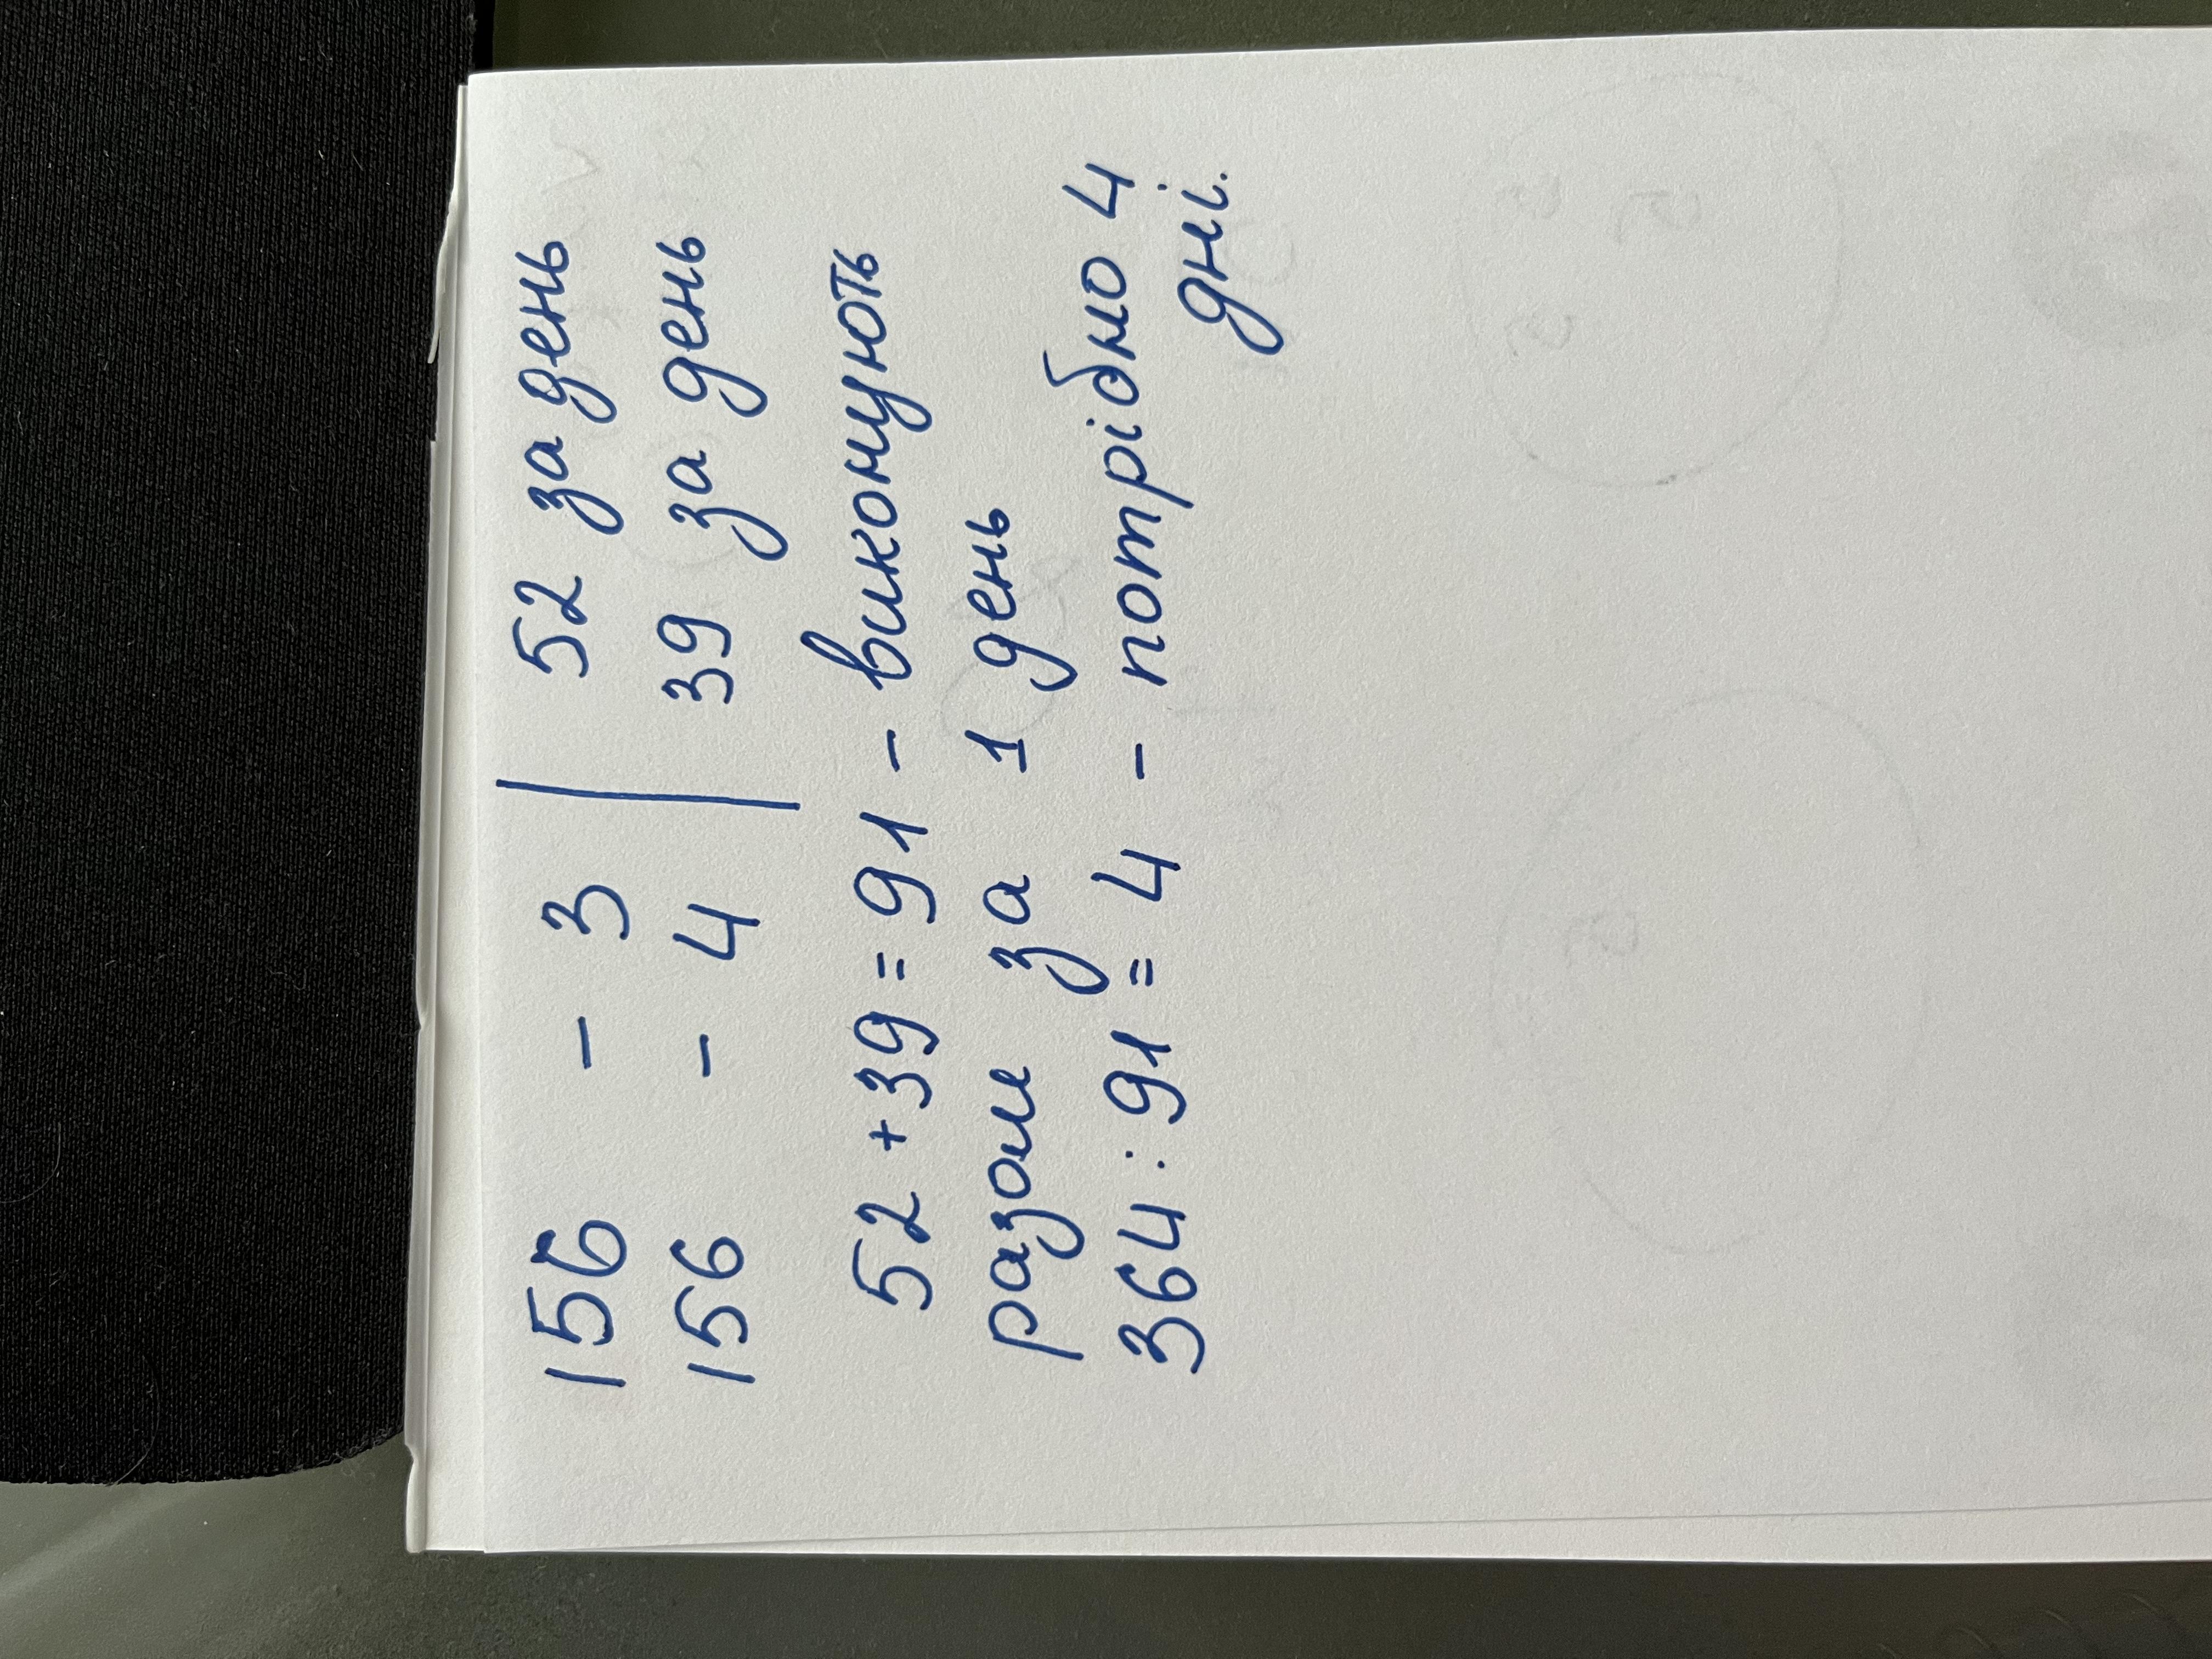 156 - 3 | 52 за день
156 - 4 | 39 за день
52 + 39 = 91 - виконують
разом за 1 день
364 : 91 = 4 - потрібно 4
дні.